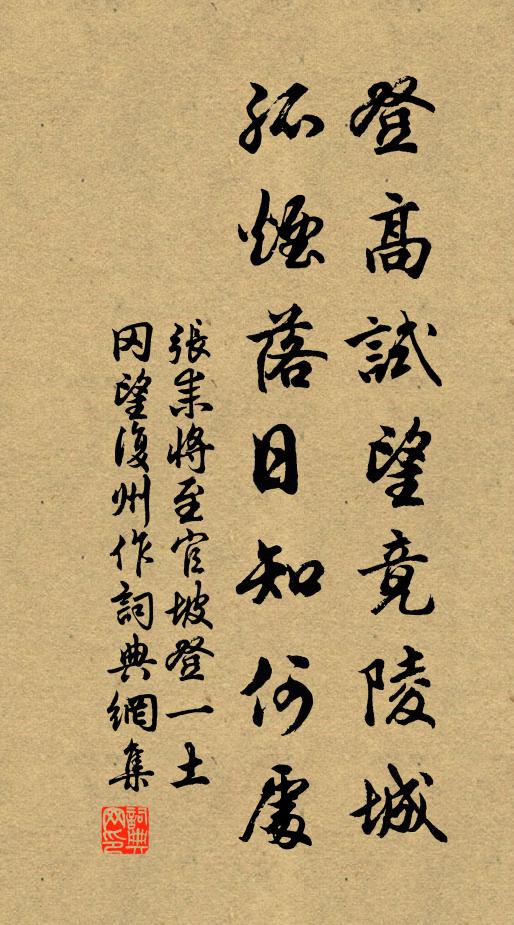 登高試望竟陵城
孤煙落日知何處
張耒將至官坡登一土
岡望復州作詞典網集
詞典网印